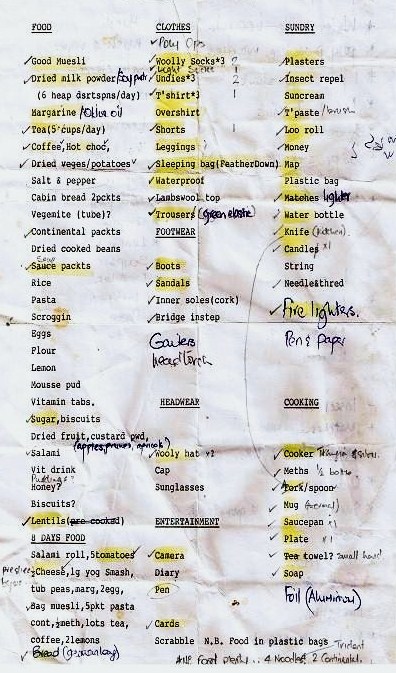 FOOD
Good Muesli
Dried milk powder/soy milk
(6 heap dsrtspns/day)
Margarine/Olive oil
Tea(5 cups/day)
Coffee, Hot choc,
Dried veges/potatoes
Salt & pepper
Cabin bread 2pckts
Vegemite (tube)?
Continental packts
Dried cooked beans
Soup
Sauce packts
Rice
Pasta
Scroggin
Eggs
Flour
Lemon
Mousse pud
Vitamin tabs.
Sugar,biscuits
Dried fruit,custard pwd,
(apples, prunes, apricots)
Salami
Vit drink
Puddings?
Honey?
Biscuits?
Lentils(pre cooked)
8 DAYS FOOD
Salami roll,5tomatoes
Cheese,lg yog Smash,
tub peas,marg,2egg,
Bag muesli,5pkt pasta
cont,½meth,lots tea,
coffee,2lemons
Bread
CLOTHES
Poly Ops
Woolly Socks*3 2
Undies*3 2
T'shirt*3 1
Overshirt
Shorts 1
Leggings
Sleeping bag(FeatherDown)
Waterproof
Lambswool top
Trousers (green elastic)
FOOTWEAR
Boots
Sandals
Inner soles(cork)
Bridge instep
Gaiters
head torch
HEADWEAR
Wooly hat x2
Cap
Sunglasses
ENTERTAINMENT
Camera
Diary
Pen
Cards
Scrabble
SUNDRY
Plasters
Insect repel
Suncream
T'paste/brush
Loo roll
Money
Map
Plastic bag
Matches lighter
Water bottle
Knife (Kitchen)
Candles x1
String
Needle&thred
Fire lighters.
Pen & paper
COOKING
Cooker
Meths ½ bottle
Fork/spoon
Mug (thermal)
Saucepan x1
Plate x1
Tea towel? small hand
Soap
Foil (Aluminium)
N.B. Food in plastic bags
Trident
Food plenty .. 4 Noodles, 2 Continental.